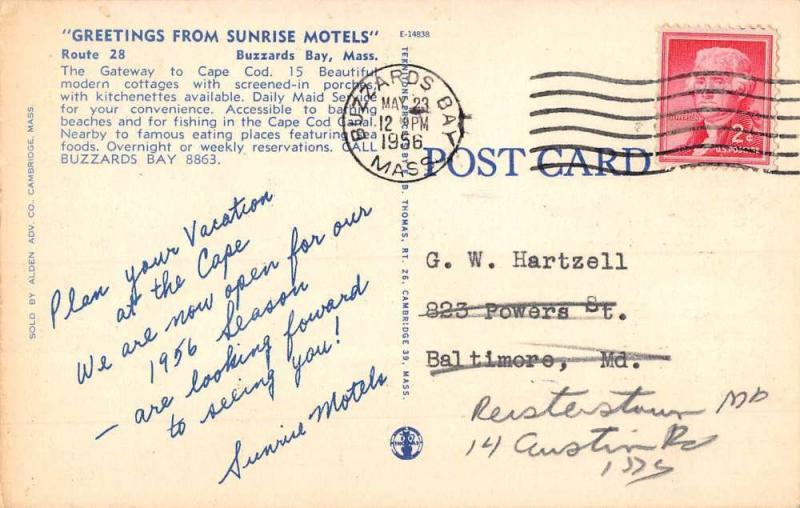 "GREETINGS FROM SUNRISE MOTELS"
Route 28 Buzzards Bay, Mass.
The Gateway to Cape Cod. 15 Beautiful
modern cottages with screened-in porches,
with kitchenettes available. Daily Maid Service
for your convenience. Accessible to bathing
beaches and for fishing in the Cape Cod Canal.
Nearby to famous eating places featuring sea
foods. Overnight or weekly reservations. CALL
BUZZARDS BAY 8863.
SOLD BY ALDEN ADV. CO., CAMBRIDGE, MASS.
Plan your Vacation
at the Cape
We are now open for our
1956 Season
— are looking foward
to seeing you!
Sunrise Motels
E-14838
B. THOMAS, RT. 26, CAMBRIDGE 39, MASS.
BUZZARDS BAY
MAY 23
12 PM
1956
MASS.
2¢
U.S. POSTAGE
POST CARD
G. W. Hartzell
823 Powers St.
Baltimore, Md.
Reisterstown MD
14 Austin Rd